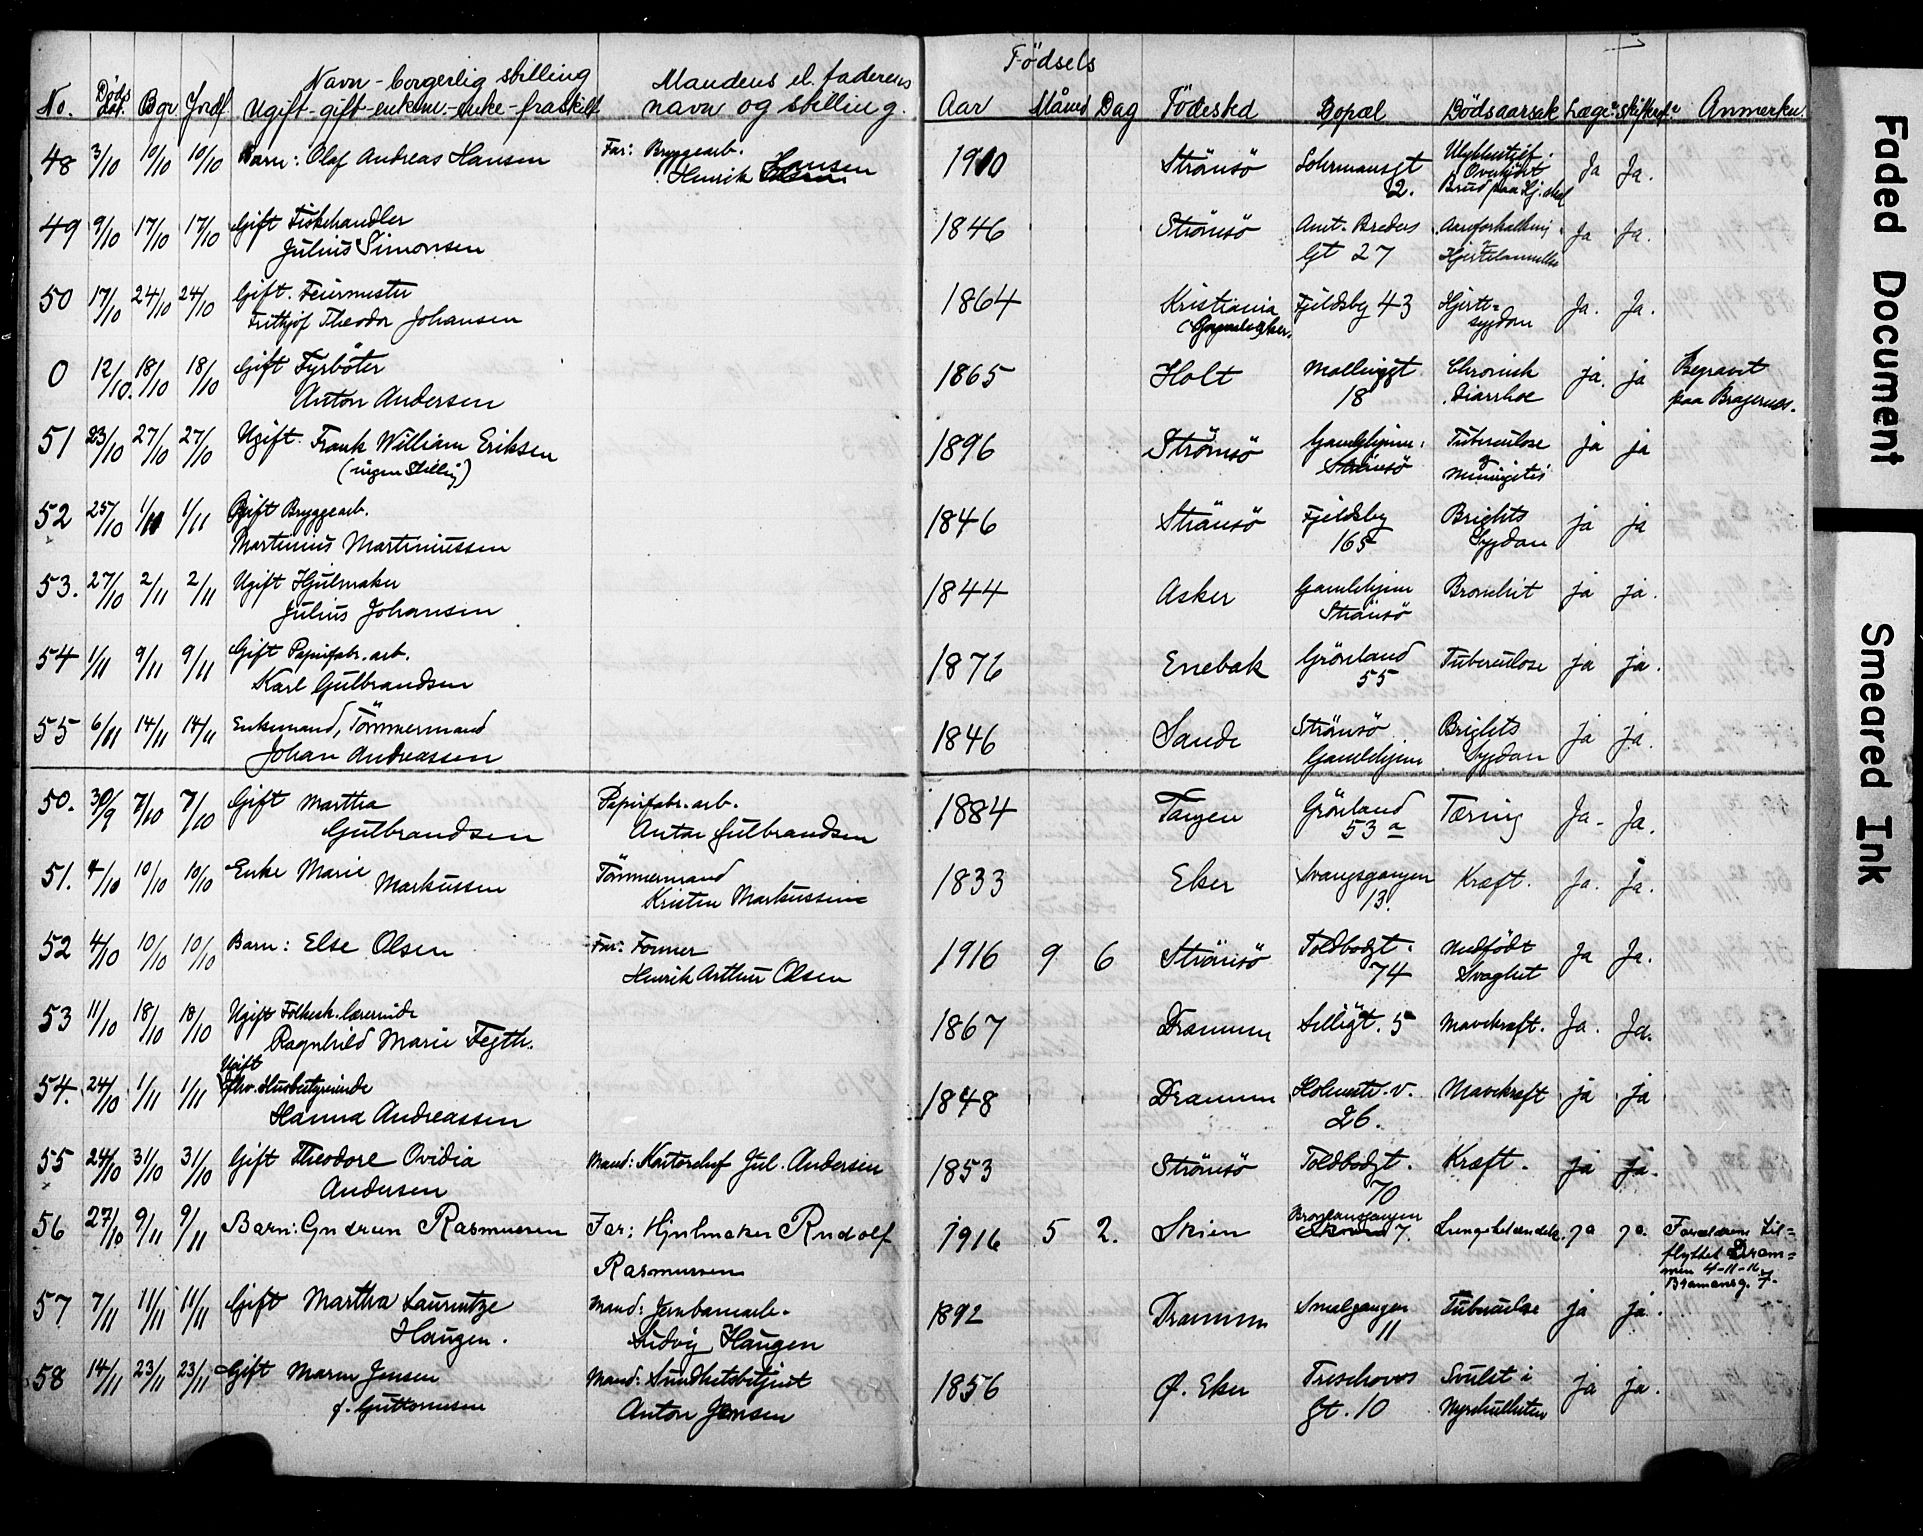 Födsels
No. Döds dat. Begr. Jordf. Navn - borgerlig stilling Mandens el. faderens Aar Måned Dag Födested Bopæl Dödsaarsak Læge Skifteret Anmerkn.
Ugift - gift - enkem. - enke - fraskilt navn og stilling.
48 3/10 10/10 10/10 Barn: Olaf Andreas Hansen Far: Bryggearb. 1910 Strömsö Ja Ja.
Henrik Hansen 2.
49 9/10 17/10 17/10 Gift Fiskehandler 1846 Strömsö Amt. Breders Aareforkalkning Ja Ja.
Julius Simonsen Gt 27
50 17/10 24/10 24/10 Gift. Feiermester 1864 Kristiania Fjeldsby 43 Hjerte= Ja. Ja.
Frithjof Theodor Johansen sygdom
0 12/10. 18/10 18/10 Gift Fyrböter 1865 Holt Möllergt Chronisk ja. ja Begravet
Anton Andersen 18 Diarrhoe paa Bragernes.
51 23/10 27/10 27/10 Ugift. Frank William Eriksen 1896 Strömsö Gamlehjem. Tuberculose ja ja
(ingen Stillig) Strömsö Meningitis
52 25/10 1/11 1/11 Gift Bryggearb. 1846 Strömsö Fjeldsby Brights ja ja
Martinius Martiniussen 165 Sygdom
53. 27/10 2/11 2/11 Ugift Hjulmaker 1844 Asker Gamlehjem Bronchit ja ja.
Julius Johansen Strömsö
54 1/11 9/11 9/11 Gift Papirfabr. arb. 1876 Enebak Grönland Tuberculose ja ja.
Karl Gulbrandsen 55
55 6/11 14/11 14/11 Enkemand, Tömmermand 1846 Sande Strömsö Brights ja ja.
Johan Andreassen Gamlehjem Sygdom
50. 30/9 7/10 7/10 Gift Martha Papirfabr. arb. 1884 Tangen Grönland Tæring Ja. Ja.
Gulbrandsen Anton Gulbrandsen 53 a
51. 4/10 10/10 10/10 Enke Marie Tömmermand 1833 Eker Svangsgangen Kræft. Ja. Ja.
Markussen Kristen Markussen 13.
52 4/10 10/10 10/10 Barn: Else Olsen Far: Former 1916 9 6 Strömsö Toldbodgt. Medfödt Ja Ja.
Henrik Arthur Olsen 74 Svaghet
53 11/10 18/10 18/10 Ugift Folkesk. lærerinde 1867 Drammen Selligt. 5 Mavekræft. Ja. Ja.
Ragnhild Marie Fegth.
Ugift
54. 24/10 1/11 1/11 fhv. Husbestyrerinde 1848 Drammen Holmestr. v. Mavekræft ja ja
Hanna Andreassen 26.
55 24/10 31/10 31/10 Gift Theodore Ovidia Mand: Kontorchef Jul. Andersen 1853 Strömsö Toldbodgt. Kræft. ja ja.
Andersen 70
56 27/10 9/11 9/11 Barn: Gudrun Rasmussen Far: Hjulmaker Rudolf 1916 5 2. Skien 7. Lungebetændelse. ja ja. Forældrene til=
Rasmussen flyttet Dram=
men 4-11-16
Bramansg. 7.
57 7/11 11/11 11/11 Gift Martha Laurentze Mand: Jernbanearb. 1892 Drammen Smalgangen Tuberculose ja ja.
Haugen. Ludvig Haugen 11
58 14/11 23/11 23/11 Gift Maren Jensen Mand: Sundhetsbetjent 1856 Ø. Eker Treschows Svulst i ja ja.
f. Guttormsen Anton Jensen gt. 10 Nyrehulheten
Faded Document
Smeared Ink